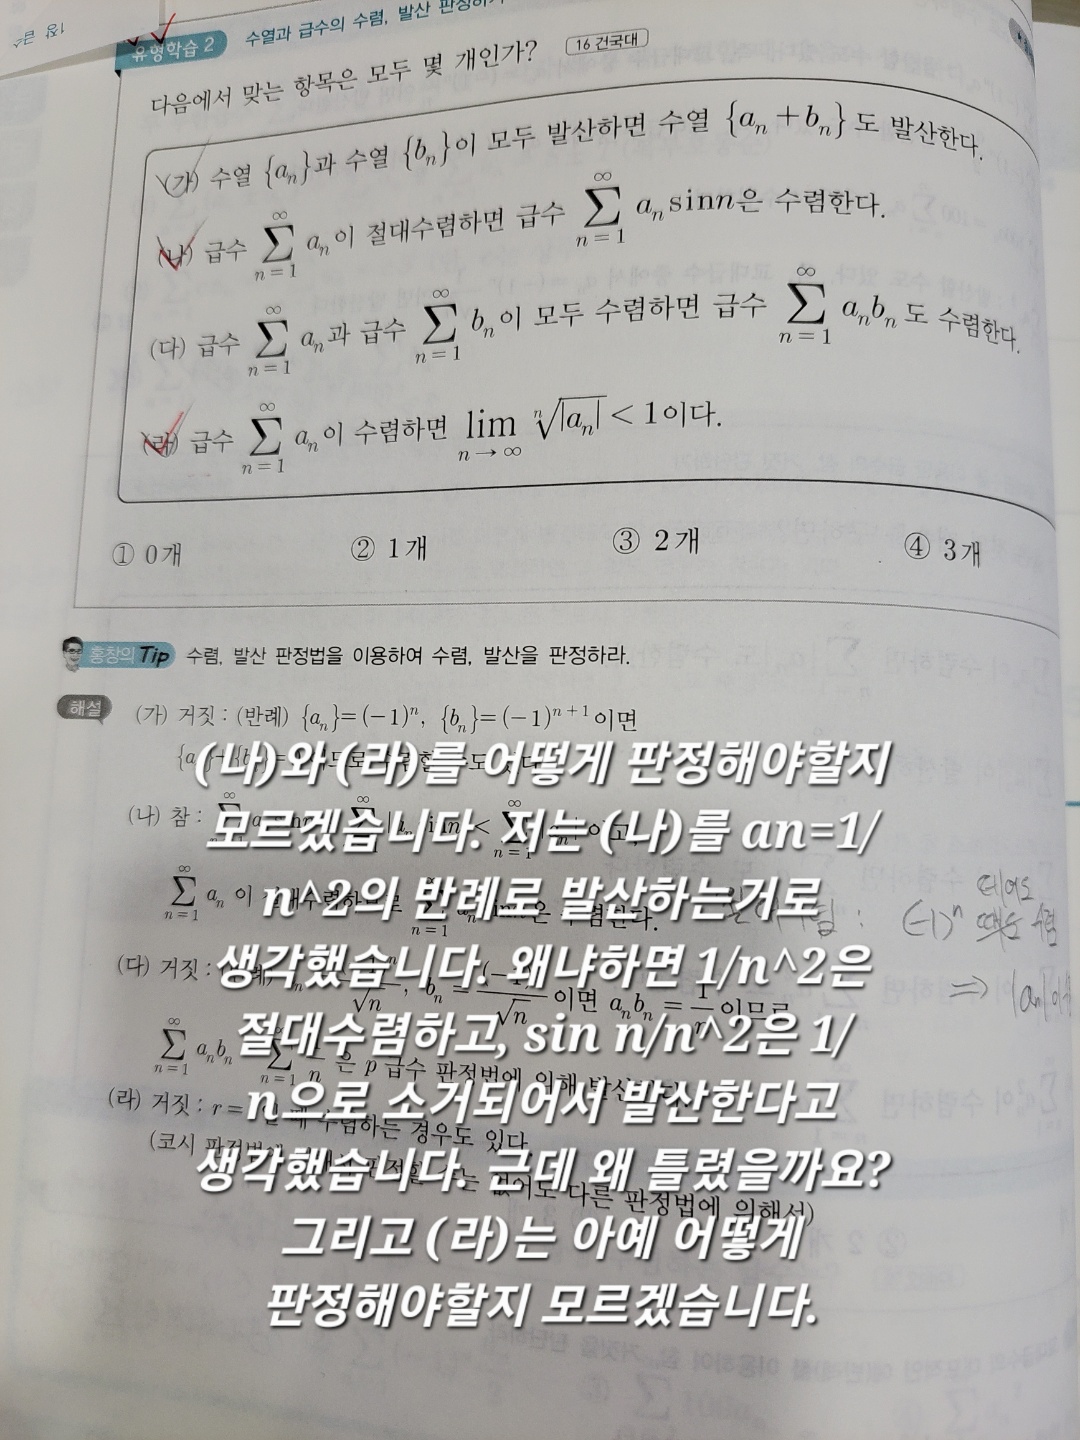 유형학습 2 수열과 급수의 수렴, 발산 판정하기
다음에서 맞는 항목은 모두 몇 개인가? 16 건국대
(가) 수열 {aₙ}과 수열 {bₙ}이 모두 발산하면 수열 {aₙ+bₙ}도 발산한다.
(나) 급수 ∑_{n=1}^{∞} aₙ이 절대수렴하면 급수 ∑_{n=1}^{∞} aₙ sin n은 수렴한다.
(다) 급수 ∑_{n=1}^{∞} aₙ과 급수 ∑_{n=1}^{∞} bₙ이 모두 수렴하면 급수 ∑_{n=1}^{∞} aₙbₙ도 수렴한다.
(라) 급수 ∑_{n=1}^{∞} aₙ이 수렴하면 lim_{n→∞} ⁿ√|aₙ| < 1이다.
① 0개 ② 1개 ③ 2개 ④ 3개
홍창의 Tip 수렴, 발산 판정법을 이용하여 수렴, 발산을 판정하라.
해설 (가) 거짓 : (반례) {aₙ}=(-1)ⁿ, {bₙ}=(-1)ⁿ⁺¹이면
(나)와 (라)를 어떻게 판정해야할지
(나) 참 :
모르겠습니다. 저는 (나)를 an=1/
∑_{n=1}^{∞} aₙ이
n^2의 반례로 발산하는거로
은 수렴한다.
(-1)ⁿ
생각했습니다. 왜냐하면 1/n^2은
(다) 거짓 :
이면 aₙbₙ =
절대수렴하고, sin n/n^2은 1/
∑_{n=1}^{∞} aₙbₙ
은 p급수 판정법에 의해
n으로 소거되어서 발산한다고
(라) 거짓 : r=
수렴하는 경우도 있다.
생각했습니다. 근데 왜 틀렸을까요?
(코시 판정법
다른 판정법에 의해서)
그리고 (라)는 아예 어떻게
판정해야할지 모르겠습니다.